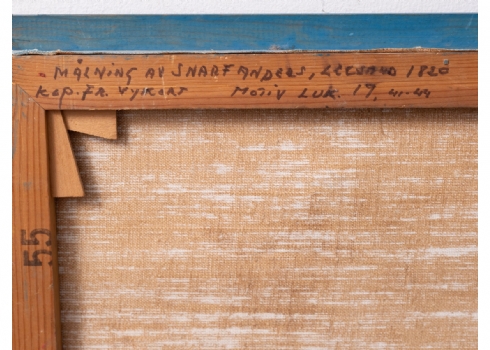 - MÅLNING AV SNARF ANDERS, LEKSAND 1820
KOP. FR. VYKORT MOTIV LUK. 19, 41-44
55